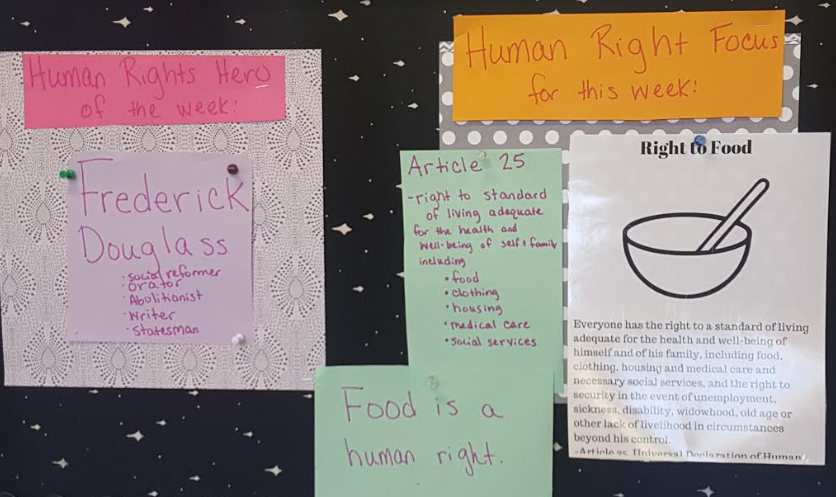 Human Rights Hero
of the week:
Frederick
Douglass
• social reformer
• orator
• Abolitionist
• Writer
• Statesman
Human Right Focus
for this week:
Article 25
- right to standard
of living adequate
for the health and
well-being of self & family
including
• food
• clothing
• housing
• medical care
• social services
Food is a
human right.
Right to Food
Everyone has the right to a standard of living
adequate for the health and well-being of
himself and of his family, including food,
clothing, housing and medical care and
necessary social services, and the right to
security in the event of unemployment,
sickness, disability, widowhood, old age or
other lack of livelihood in circumstances
beyond his control.
-Article 25, Universal Declaration of Human